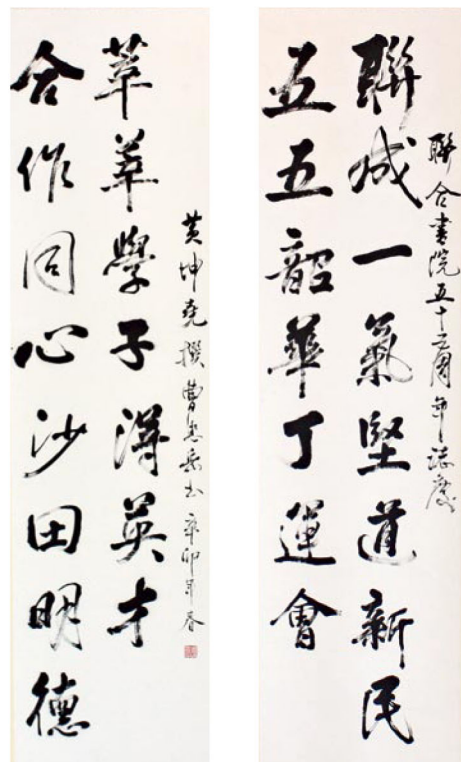 聯合書院五十五周年誌慶
聯成一氣堅道新民
五五韶華丁運會
合作同心沙田明德
莘莘學子得英才
黃坤堯撰曹書辛卯春